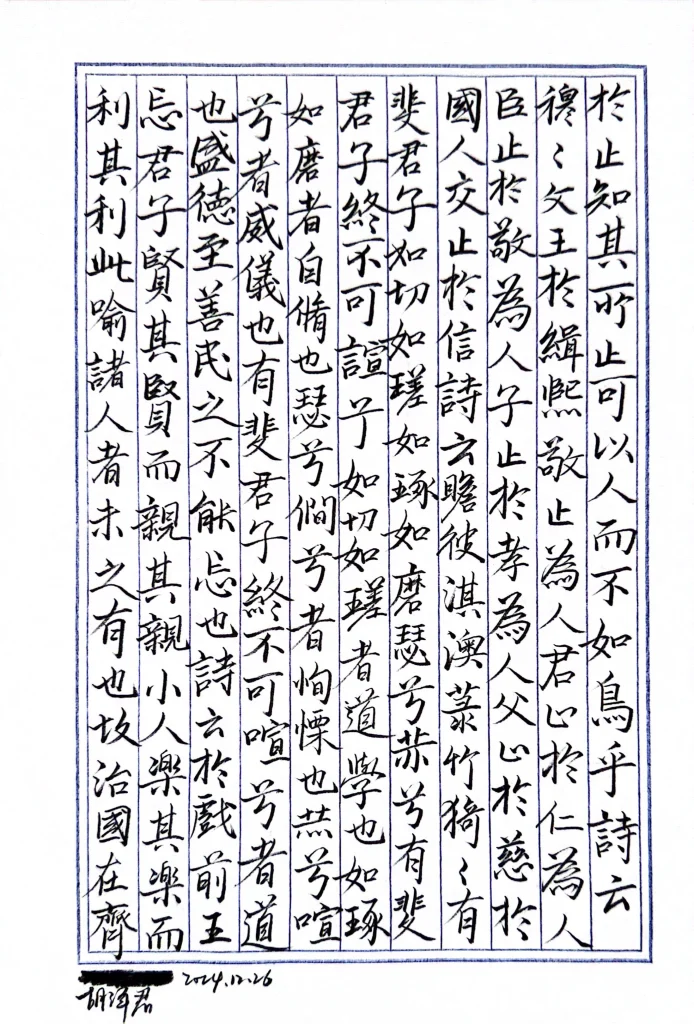 於止知其所止可以人而不如鳥乎詩云
穆〻文王於緝熙敬止為人君止於仁為人
臣止於敬為人子止於孝為人父止於慈於
國人交止於信詩云瞻彼淇澳菉竹猗〻有
斐君子如切如瑳如琢如磨瑟兮兮有斐
君子終不可諠兮如切如瑳者道學也如琢
如磨者自脩也瑟兮僩兮者恂慄也兮喧
兮者威儀也有斐君子終不可喧兮者道
也盛德至善民之不能忘也詩云於戲前王
忘君子賢其賢而親其親小人樂其樂而
利其利此喻諸人者未之有也故治國在齊
胡泽君 2024.12.26